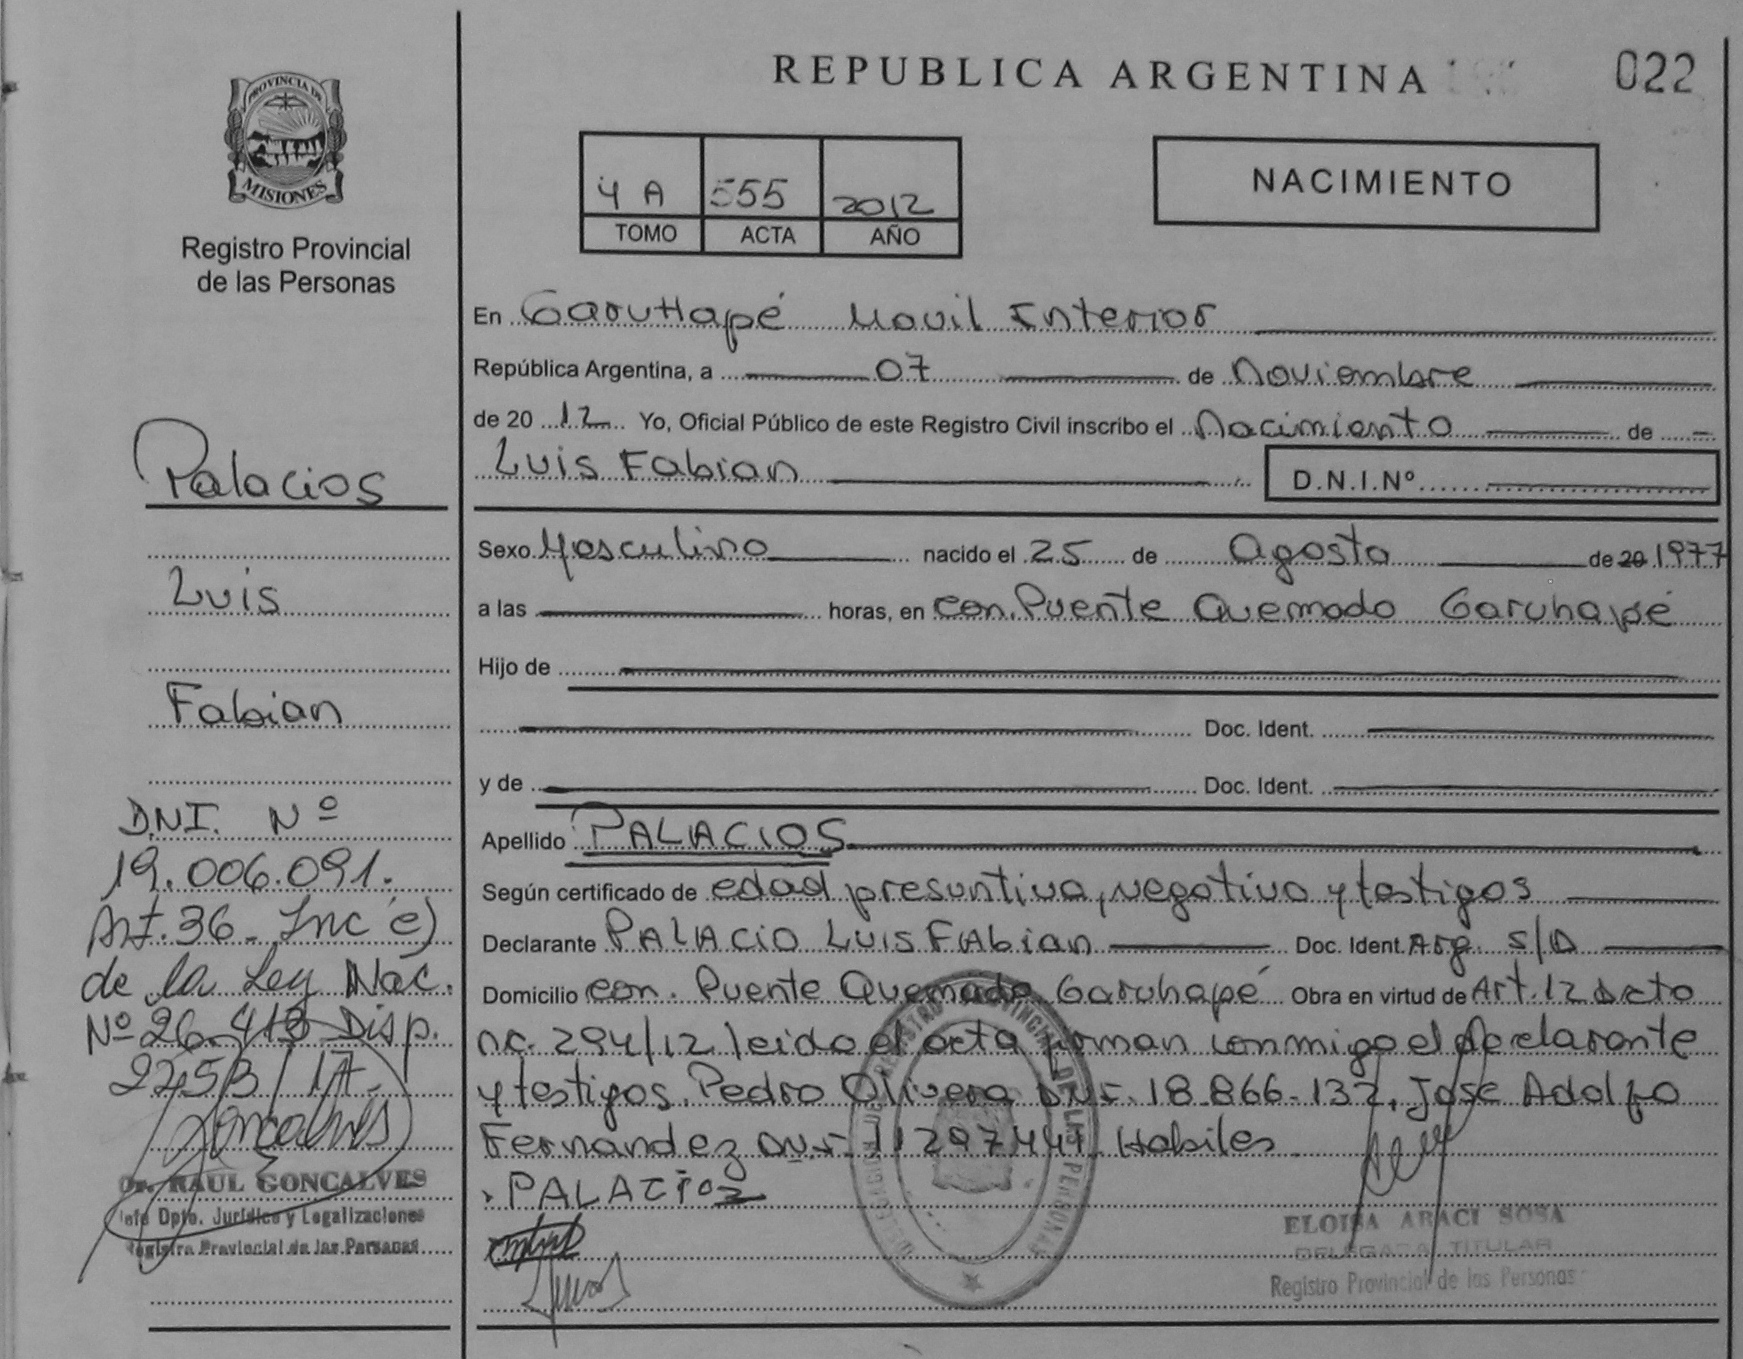 PROVINCIA DE
MISIONES
Registro Provincial
de las Personas
Palacios
Luis
Fabian
D.N.I. Nº
19.006.091.
Art. 36 - Inc e)
de la Ley Nac.
Nº 26.413 Disp.
2245B/17-
Dr. RAUL GONCALVES
Jefe Dpto. Jurídico y Legalizaciones
Registro Provincial de las Personas
REPUBLICA ARGENTINA
022
4 A 555 2012
TOMO ACTA AÑO
NACIMIENTO
En Garuhapé Movil Interior
República Argentina, a 07 de Noviembre
de 20 12 Yo, Oficial Público de este Registro Civil inscribo el Nacimiento de
Luis Fabian D.N.I.Nº
Sexo Masculino nacido el 25 de Agosto de 20 1977
a las horas, en Con. Puente Quemado Garuhapé
Hijo de
Doc. Ident.
y de Doc. Ident.
Apellido PALACIOS
Según certificado de edad presuntiva, negativo y testigos
Declarante PALACIO LUIS FABian Doc. Ident. Arg. S/D
Domicilio Con. Puente Quemado Garuhapé Obra en virtud de Art. 12 Dcto
nc. 294/12 leido el acta firman conmigo el declarante
y testigos. Pedro Olivera DNI. 18.866.132, Jose Adolfo
Fernandez DNI 11297441. Habiles
PALACIOS
DELEGACION REGISTRO PROVINCIAL DE LAS PERSONAS
ELOISA ARACI SOSA
DELEGADA TITULAR
Registro Provincial de las Personas